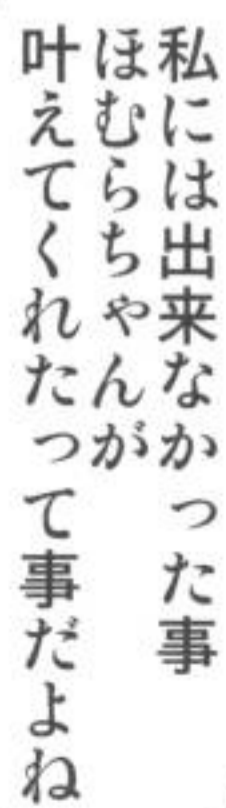 私には出来なかった事
ほむらちゃんが
叶えてくれたって事だよね